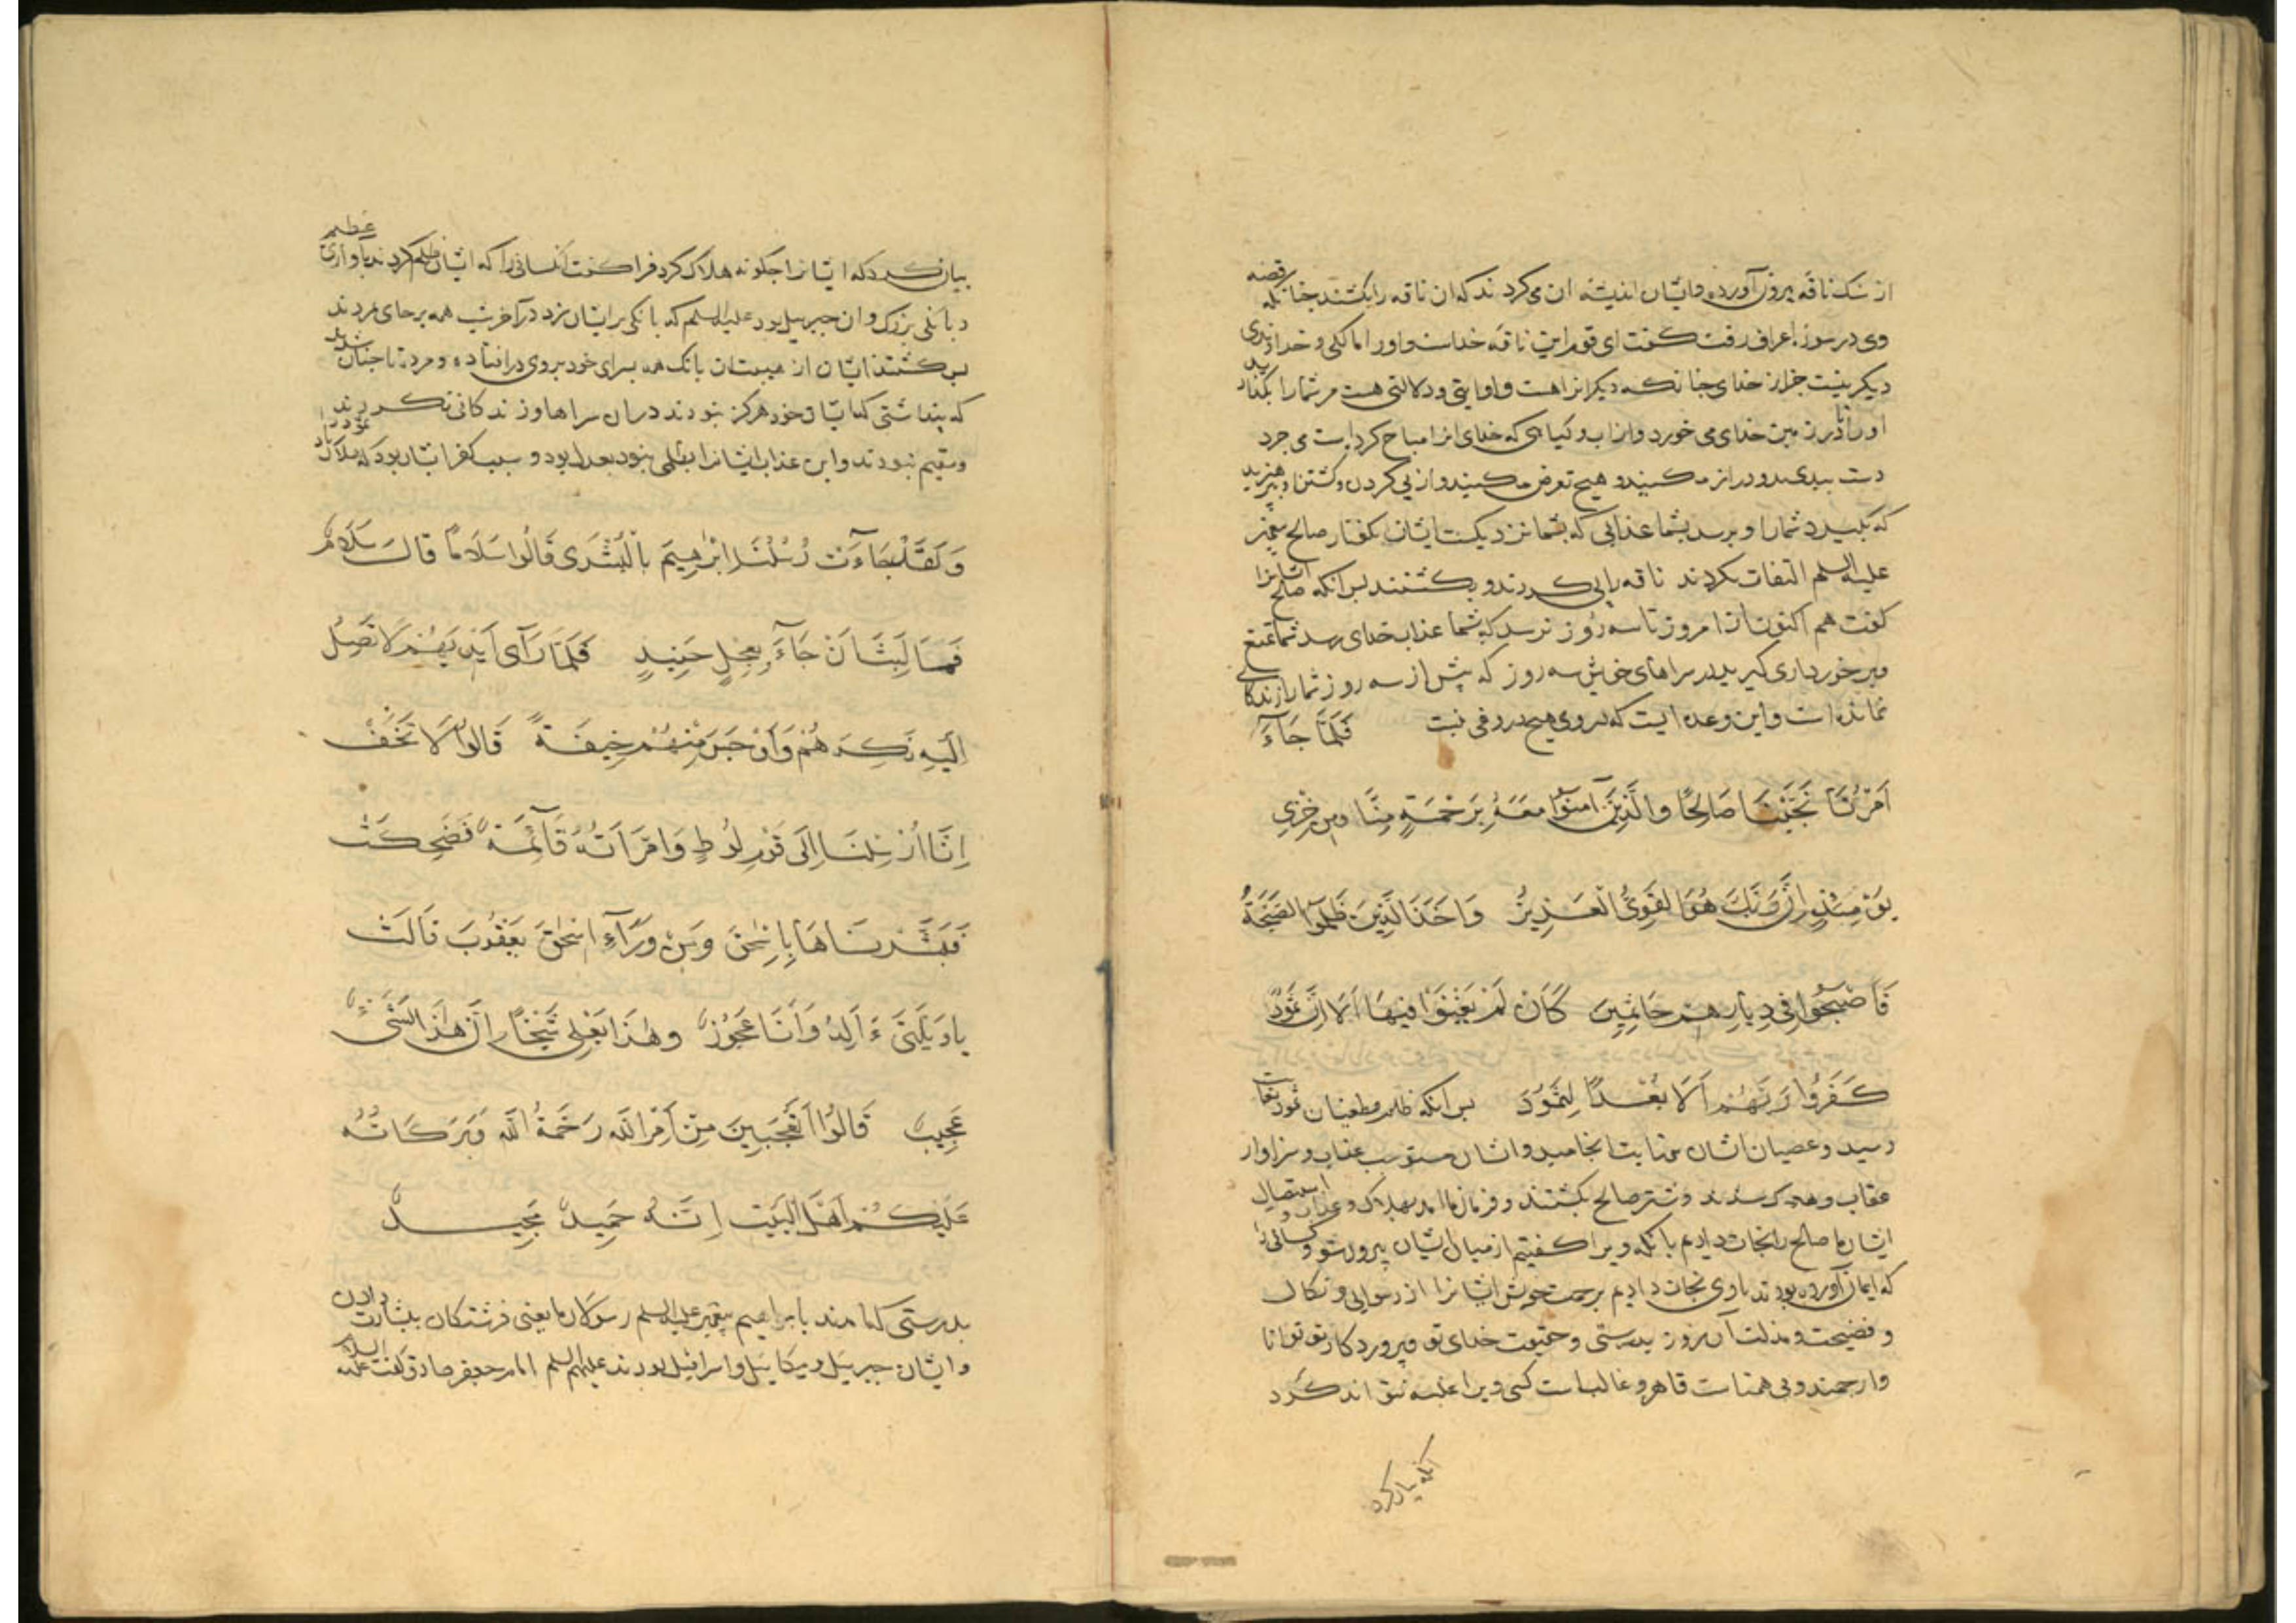 از سنک ناقه بیرون آورده و ایشان اندیشه ان می کردند که ان ناقه را بکشند جنانکه قصه
وی در سورة اعراف رفت کفت ای قوم این ناقه خداست و اورا مالکی و خداوندی
دیکر نیست جز از خدای جنانکه دیکرانرا هست و او ایتی و دلالتی هست مر شمارا بکذارید
اورا تا در زمین خدای می خورد و از اب و کیاهی که خدای انرا مباح کرده است می جرد
دست ببدی بدو دراز مکنید و هیچ تعرض مکنید و از پی کردن و کشتن او بپرهیزید
که بکیرد شمارا و برسد بشما عذابی که بشما نزدیکست ایشان بکفتار صالح پیغمبر
علیه السلم التفات نکردند ناقه را پی کردند و بکشتند بس انکه صالح ایشانرا
کفت هم اکنون تا از امروز تا سه روز نرسد که بشما عذاب خدای رسد شما تمتع
و برخورداری کیرید در سراهای خویش سه روز که بیش از سه روز شمارا زندکانی
نمانده است و این وعده ایست که در وی هیچ دروغی نیست فَلَمَّا جَآءَ
اَمْرُنَا نَجَّيْنَا صَالِحًا وَالَّذِينَ آمَنُوا مَعَهُ بِرَحْمَةٍ مِنَّا وَمِن خِزْىِ
يَوْمِئِذٍ اِنَّ رَبَّكَ هُوَ الْقَوِىُّ الْعَزِيزُ وَاَخَذَ الَّذِينَ ظَلَمُوا الصَّيْحَةُ
فَاَصْبَحُوا فِى دِيَارِهِمْ جَاثِمِينَ كَاَنْ لَمْ يَغْنَوْا فِيهَا اَلَا اِنَّ ثَمُودَ
كَفَرُوا رَبَّهُمْ اَلَا بُعْدًا لِثَمُودَ بس انکه ظلم و طغیان ثمود بغایت
رسید و عصیان ایشان بنهایت انجامید و ایشان مستوجب عذاب و سزاوار
عقاب و هلاک شدند و شتر صالح بکشتند و فرمان ما امد بهلاک و عذاب و استیصال
ایشان ما صالح را نجات دادیم بانکه ویرا کفتیم از میان ایشان بیرون شو و کسانی را
که ایمان آورده بودند با وی نجات دادیم برحمت خویش ایشانرا از رسوایی و نکال
و فضیحت و مذلت آن روز بدرستی و حقیقت خدای تو و پروردکار تو توانا
و ارجمند و بی همتاست قاهر و غالب است کسی ویرا غلبه نتواند کرد
انکه بیان کرد
بیان کرد که ایشانرا جکونه هلاک کرد فرا کرفت کسانی را که ایشان ظلم کردند باوازی عظیم
و بانکی بزرک و ان جبرییل بود علیه السلم که بانکی بر ایشان زد در آخر شب همه بر جای مردند
بس کشتند ایشان از هیبت ان بانک همه بسرای خود بروی در افتاده و مرده تا جنان شدند
که بنداشتی که ایشان خود هرکز نبودند در ان سراها و زندکانی نکردند
و مقیم نبودند و این عذاب ایشانرا بظلمی نبود بعدل بود و سبب کفر ایشان بود که هلاک باد ثمود را
وَلَقَدْ جَاءَتْ رُسُلُنَا اِبْرٰهِيمَ بِالْبُشْرَى قَالُوا سَلَامًا قَالَ سَلَامٌ
فَمَا لَبِثَ اَنْ جَآءَ بِعِجْلٍ حَنِيذٍ فَلَمَّا رَآى اَيْدِيَهُمْ لَا تَصِلُ
اِلَيْهِ نَكِرَهُمْ وَاَوْجَسَ مِنْهُمْ خِيفَةً قَالُوا لَا تَخَفْ
اِنَّا اُرْسِلْنَا اِلَى قَوْمِ لُوطٍ وَامْرَاَتُهُ قَآئِمَةٌ فَضَحِكَتْ
فَبَشَّرْنَاهَا بِاِسْحٰقَ وَمِنْ وَرَآءِ اِسْحٰقَ يَعْقُوبَ قَالَتْ
يَاوَيْلَتَى ءَاَلِدُ وَاَنَا عَجُوزٌ وَهٰذَا بَعْلِى شَيْخًا اِنَّ هٰذَا لَشَىْءٌ
عَجِيبٌ قَالُوا اَتَعْجَبِينَ مِنْ اَمْرِ اللَّهِ رَحْمَةُ اللَّهِ وَبَرَكَاتُهُ
عَلَيْكُمْ اَهْلَ الْبَيْتِ اِنَّهُ حَمِيدٌ مَجِيدٌ
بدرستی که امدند بابراهیم پیغمبر علیه السلم رسولان ما یعنی فرشتکان ببشارت دادن
و ایشان جبرییل و میکاییل و اسرافیل بودند علیهم السلم امام جعفر صادق کفت علیه السلام